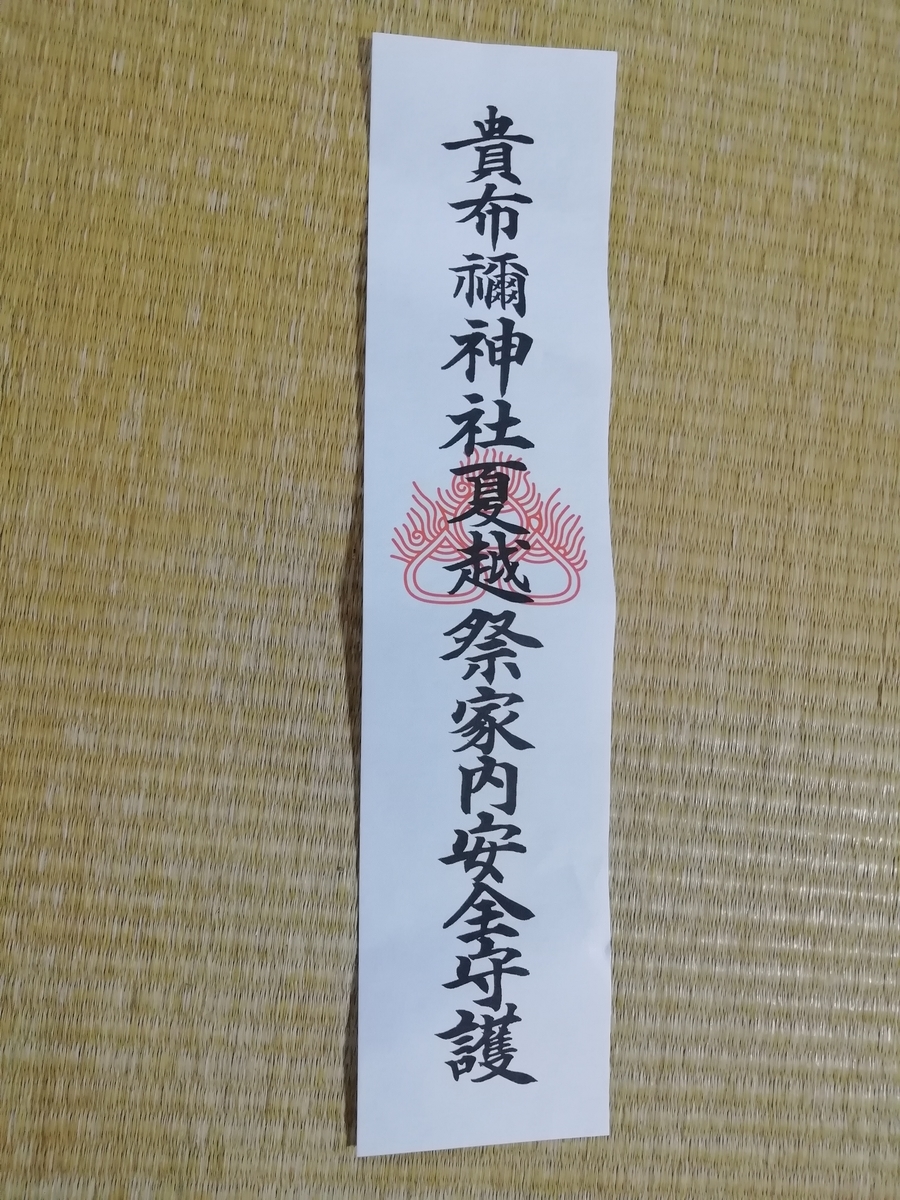 貴布禰神社夏越祭家内安全守護